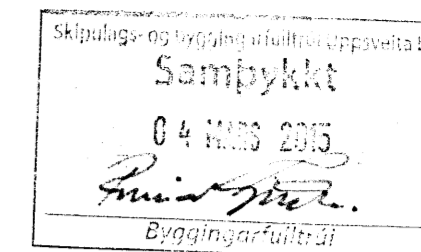 Skipulags- og byggingarfulltrúi Uppsveita
Samþykkt
04 MARS 2015
Byggingarfulltrúi